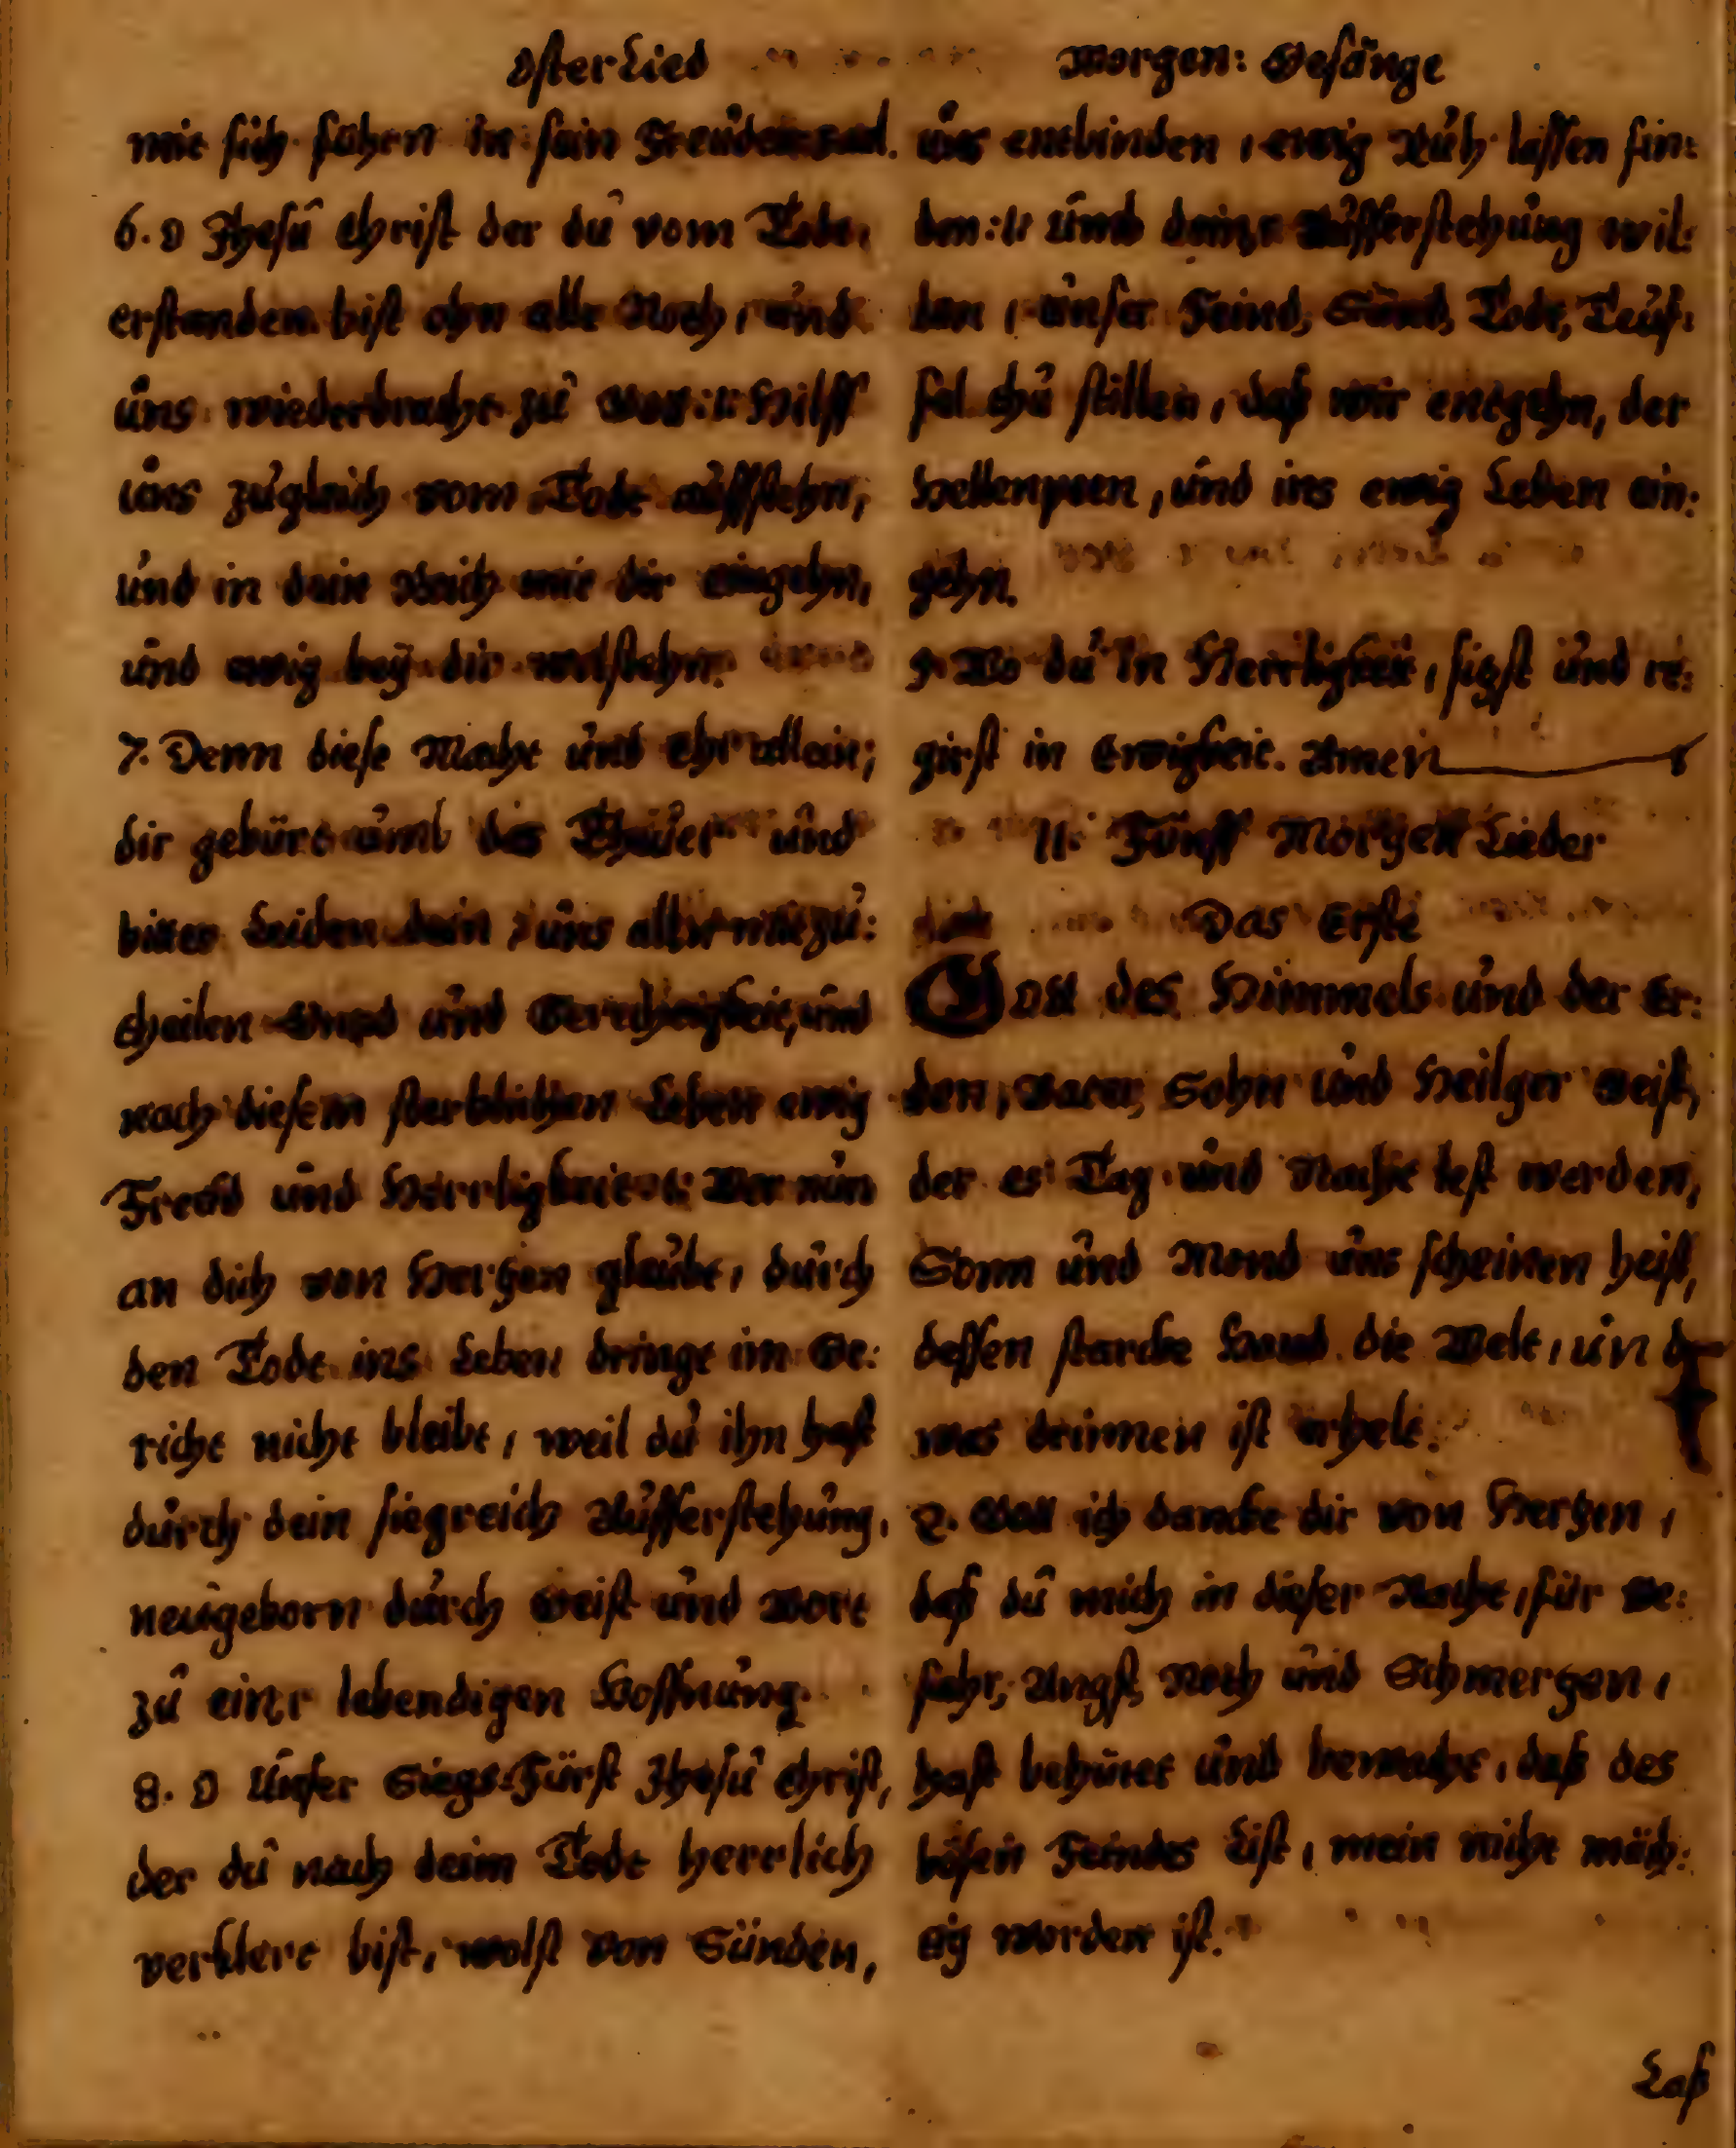 Osterlied
mit sich führn in sein Freuden saal.
6. O Jhesu Christ der du vom Todt,
erstanden bist ohn alle Noth, und
uns wiederbracht zu Gott :/: Hilff
uns zugleich vom Todt auffstehn,
und in dein Reich mit dir eingehn,
und ewig bey dir wolstehn.
7. Denn diese Macht und Ehr allein,
dir gebürt umb das Theuer und
bitter Leiden dein, uns allen mitzu:
theilen Gnad und Gerechtigkeit, und
nach diesem sterblichen Leben ewig
Freud und Herrligkeit :/: Wer nun
an dich von Hertzen gleubt, durch
den Todt ins Leben dringt im Ge:
richt nicht bleibt, weil du ihn hast
durch dein siegreich Aufferstehung,
neugeborn durch Geist und Wort
zu einr lebendigen Hoffnung.
8. O Unser Siegs-Fürst Jhesu Christ,
der du nach deim Todt herrlich
verklert bist, wolst von Sünden,
Morgen: Gesänge
uns entbinden, ewig Ruh lassen fin:
den :/: Umb deinr Aufferstehung wil:
len, unser Feind, Sünd, Todt, Teuf:
fel thu stillen, daß wir entgehn, der
Hellenpeen, und ins ewig Leben ein:
gehn.
9. Wo du in Herrligkeit, sitzst und re:
girst in Ewigkeit. Amen
11. Fünff Morgen Lieder
Das Erste
Gott des Himmels und der Er:
den, Vater, Sohn und Heilger Geist,
der es Tag und Nacht lest werden,
Sonn und Mond uns scheinen heist,
dessen starcke Hand die Welt, un d
was drinnen ist erhelt.
2. Gott ich dancke dir von Hertzen,
daß du mich in dieser Nacht, für Ge:
fahr, Angst, Noth und Schmertzen,
hast behütet und bewacht, daß des
bösen Feindes List, mein nicht mäch:
tig worden ist.
Laß